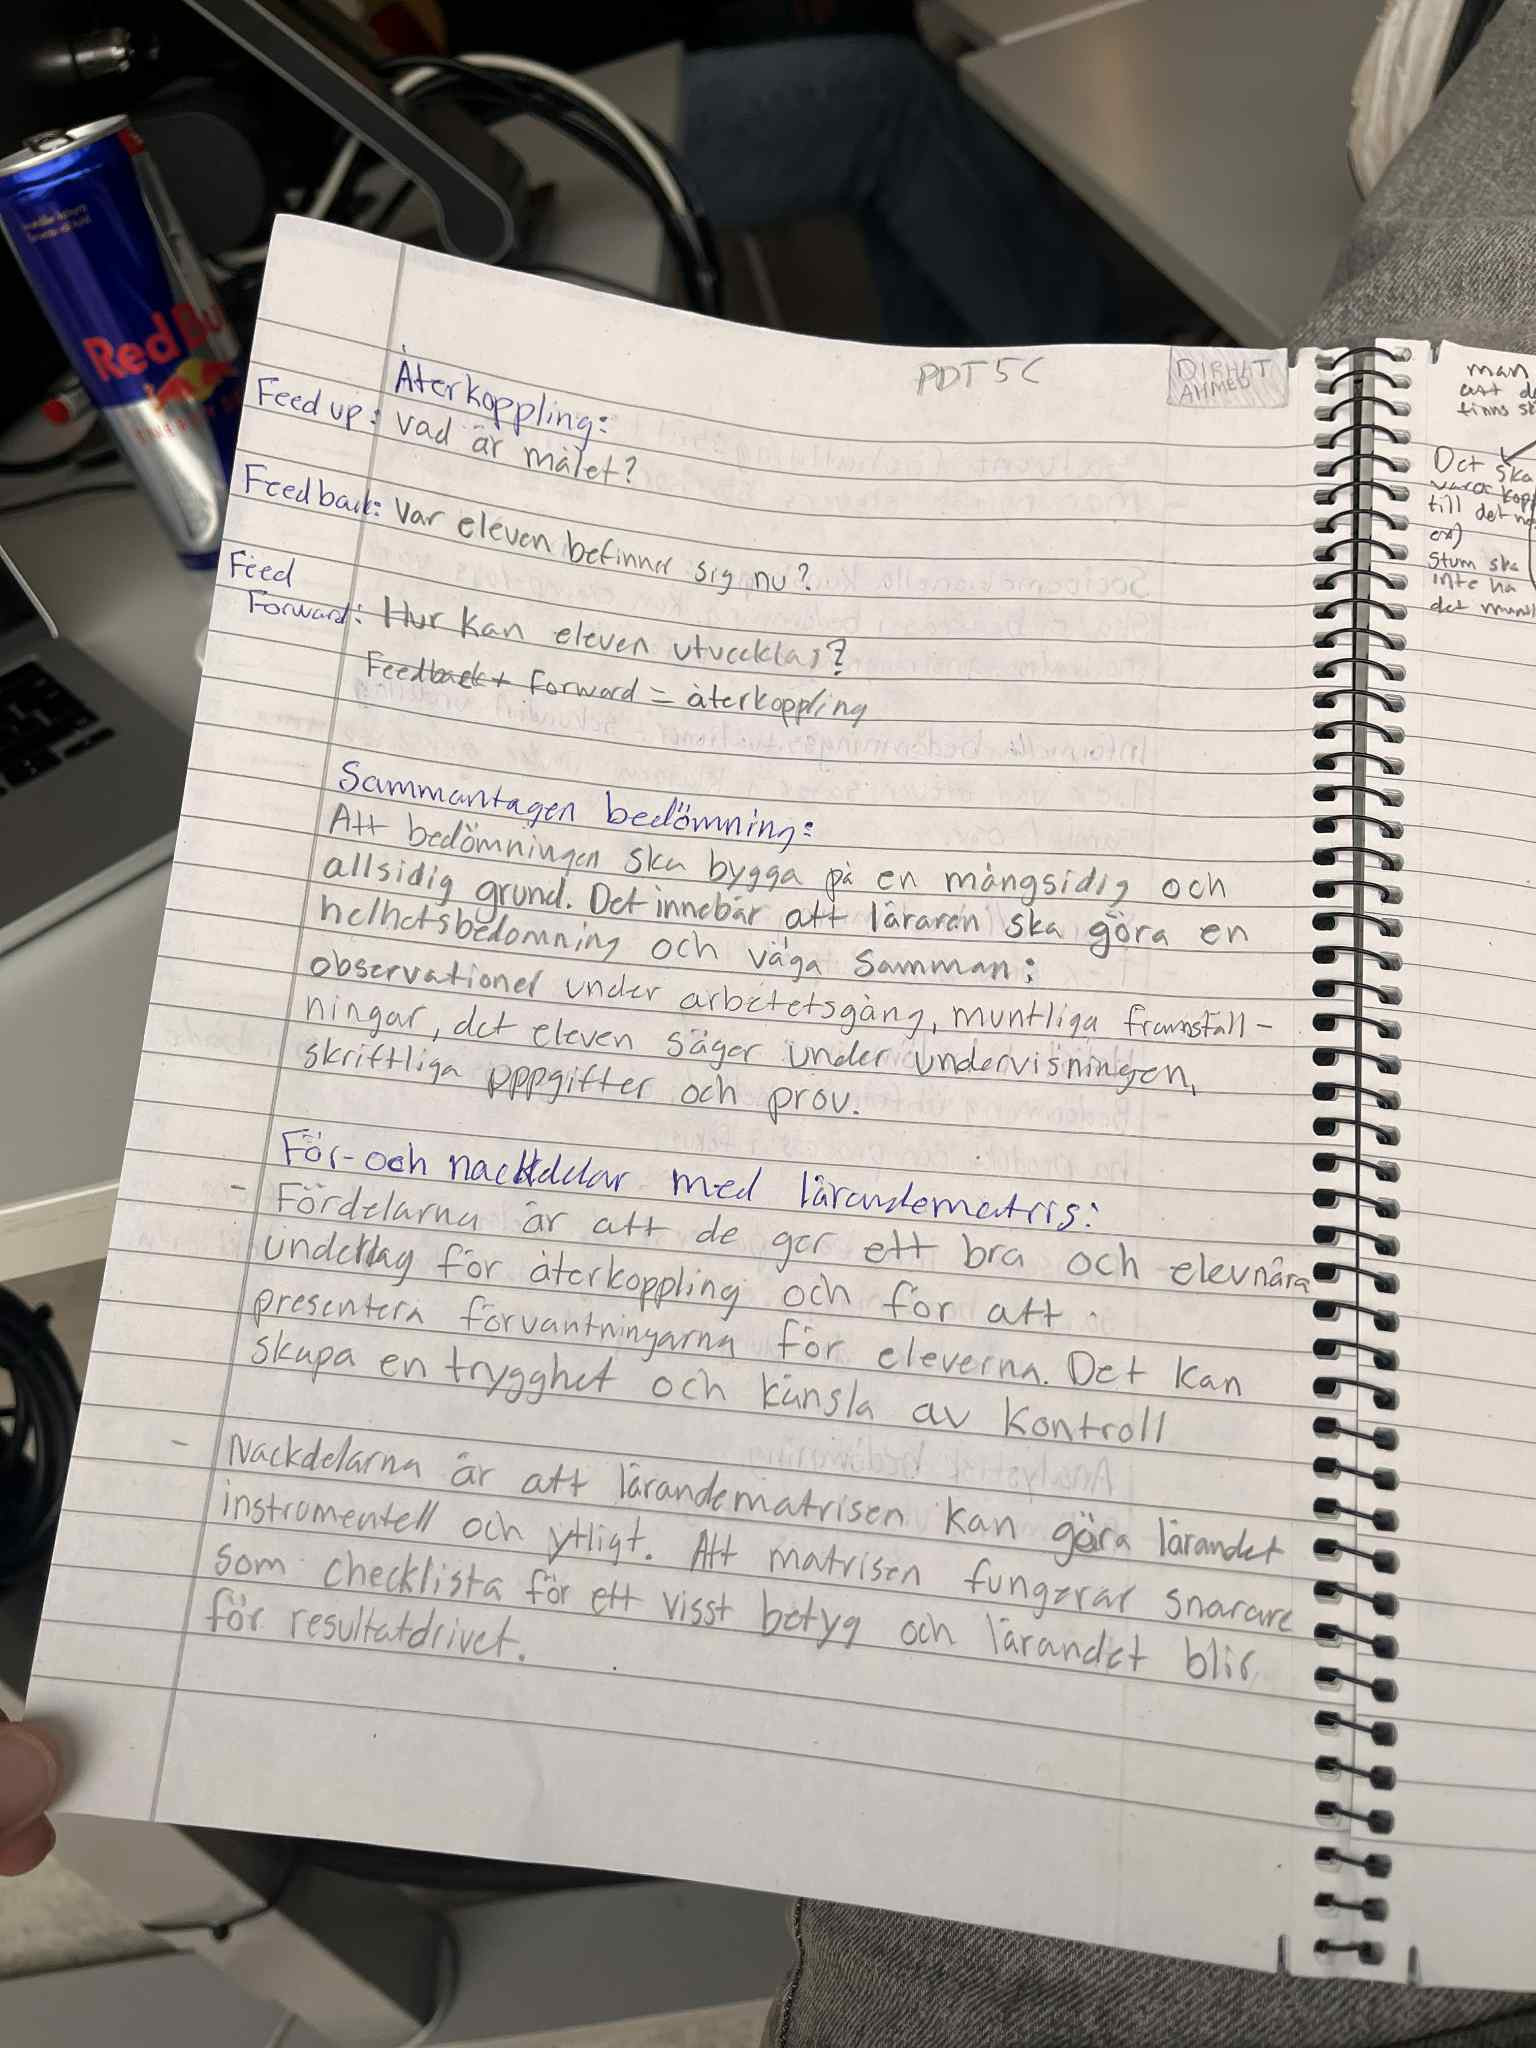 PDT5C
DIRHAT
AHMED
Återkoppling:
Feed up: Vad är målet?
Feedback: Var eleven befinner sig nu?
Feed
Forward: Hur kan eleven utvecklas?
Feedback + Forward = återkoppling
Sammantagen bedömning:
Att bedömningen ska bygga på en mångsidig och
allsidig grund. Det innebär att läraren ska göra en
helhetsbedomning och väga samman:
observationer under arbetetsgång, muntliga framställ-
ningar, det eleven säger under undervisningen,
skriftliga uppgifter och prov.
För- och nackdelar med lärandematris:
- Fördelarna är att de ger ett bra och elevnära
underlag för återkoppling och för att
presentera förvantningarna för eleverna. Det kan
skapa en trygghet och känsla av kontroll
- Nackdelarna är att lärandematrisen kan göra lärandet
instrumentell och ytligt. Att matrisen fungerar snarare
som checklista för ett visst betyg och lärandet blir
för resultatdrivet.
man
att de
finns
Det ska
vara
till det
Stum ska
inte ha
det
Red Bull